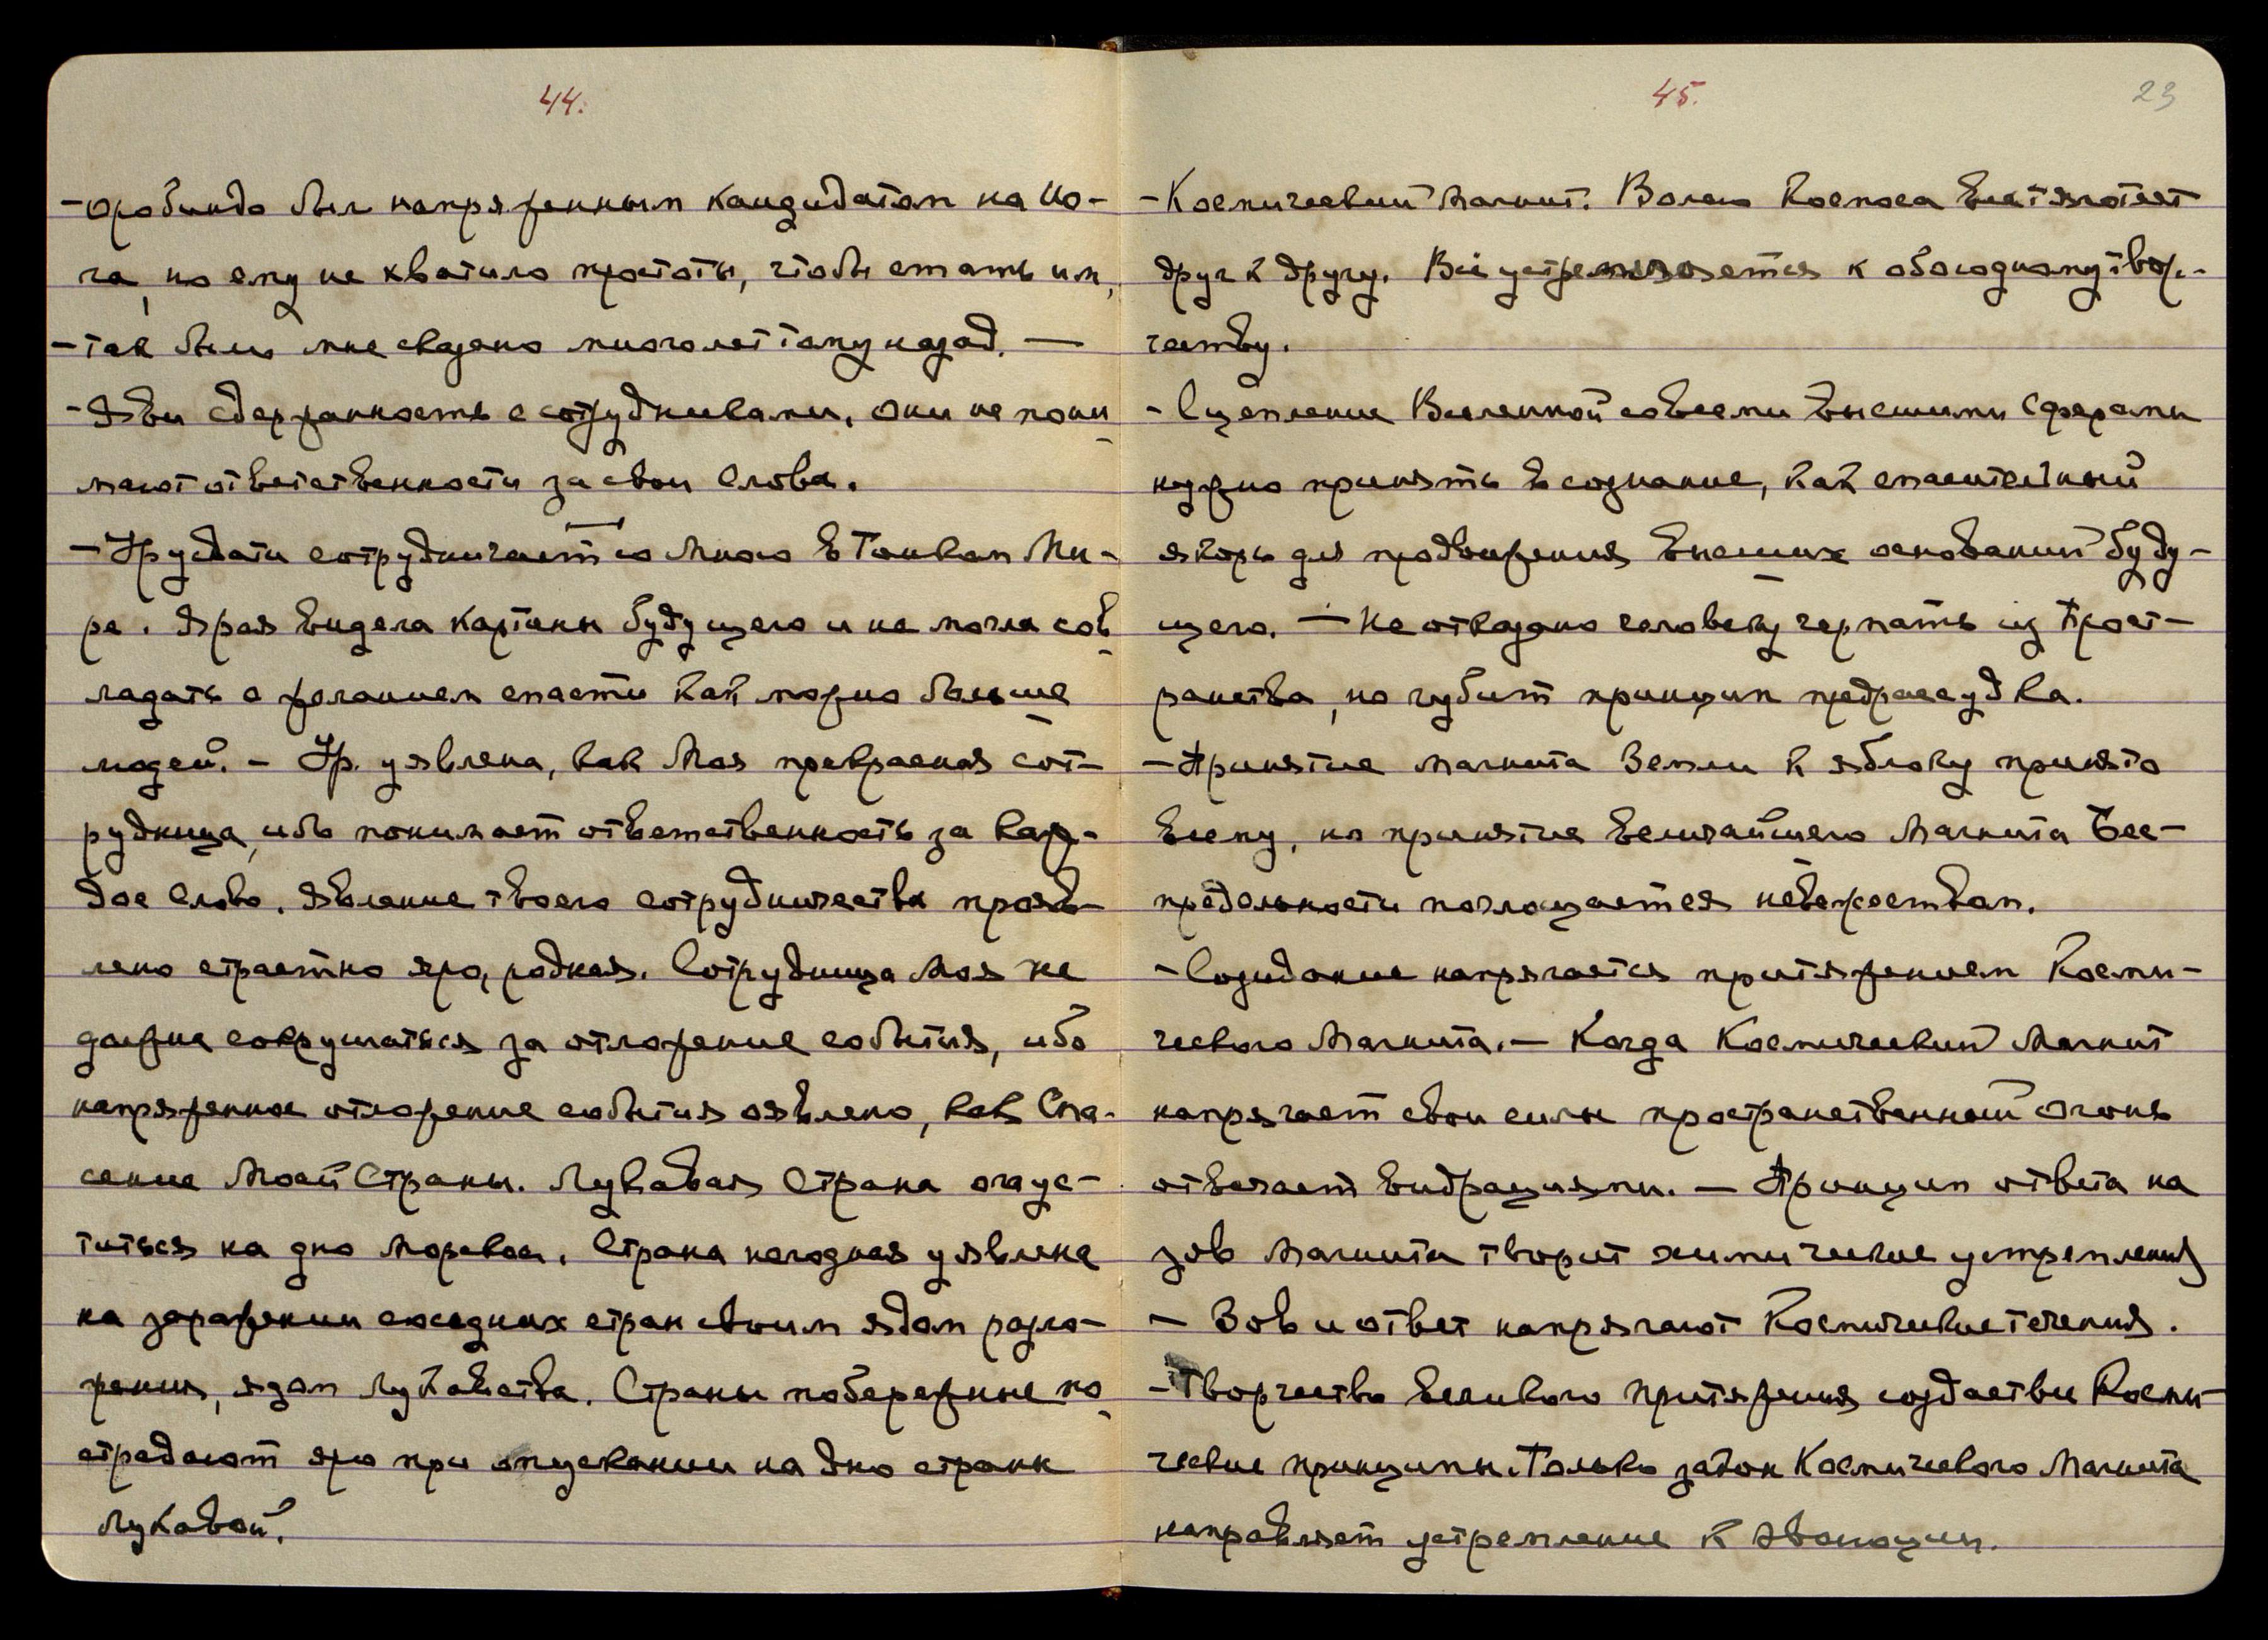 44.
- Оробиндо был напряженным кандидатом на Ио-
га, но ему не хватило простоты, чтобы стать им,
- так было мне сказано много лет тому назад. —
- Яви сдержанность с сотрудниками, они не пони-
мают ответственности за свои слова.
- Урусвати сотрудничает со Мною в Тонком Ми-
ре. Ярая видела картины будущего и не могла сов-
ладать с желанием спасти как можно больше
людей. - Ур. уявлена, как Моя прекрасная сот-
рудница, ибо понимает ответственность за каж-
дое слово. Явление твоего сотрудничества прояв-
лено страстно яро, родная. Сотрудница Моя не
должна сокрушаться за отложение события, ибо
напряженное отложение события оявлено, как Спа-
сение Моей Страны. Лукавая Страна опус-
титься на дно Морское. Страна негодная уявлена
на заражении соседних стран своим ядом разло-
жения, ядом лукавства. Страны побережные по-
страдают яро при опускании на дно страны
лукавой.
45.
23
- Космический Магнит. Волею Космоса все тяготеет
друг к другу. Всё устремляется к обоюдному твор-
честву.
- Сцепление Вселенной со всеми высшими сферами
нужно принять в сознание, как спасительный
якорь для продвижения высших оснований буду-
щего. — Не отказано человеку черпать из Прост-
ранства, но губит принцип предрассудка.
- Принятие магнита Земли к яблоку принято
всему, но принятие Величайшего Магнита Бес-
предельности поглощается невежеством.
- Созидание напрягается притяжением Косми-
ческого Магнита. — Когда Космический Магнит
напрягает свои силы пространственный огонь
отвечает вибрациями. — Принцип ответа на
зов Магнита творит химические устремления
— Зов и ответ напрягают Космические течения.
- Творчество великого притяжения создает все Косми-
ческие принципы. Только закон Космического Магнита
направляет устремление к эволюции.